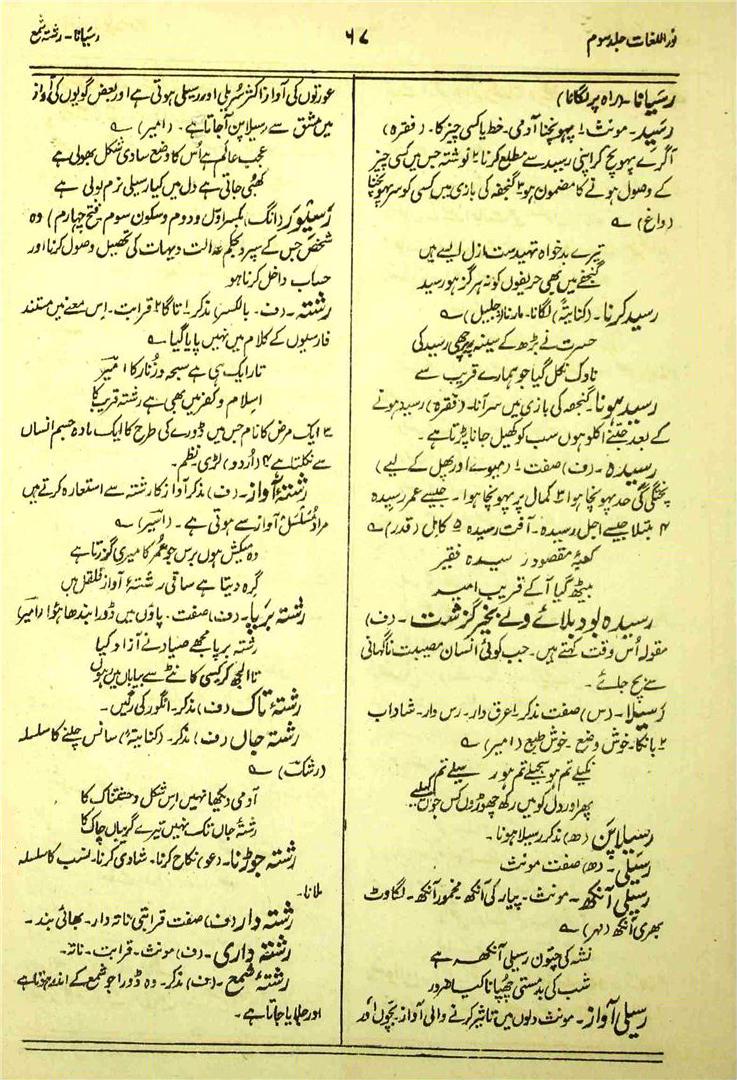 نور اللغات جلد سوم
۶۷
رسیانا۔ رشتہ شمع
رسیانا۔ (راہ پر لگانا)
رسید۔ مونث ۱ پہونچنا آدمی۔ خط یا کسی چیز کا۔ (فقرہ)
آگرے پہونچ کر اپنی رسید سے مطلع کرنا ۲ نوشتہ جس میں کسی چیز
کے وصول ہونے کا مضمون ہو ۳ گنجفہ کی بازی میں کسی کو سر پہونچنا
(داغ) ؎
تیرے بدخواہ تہیدست ازل ایسے ہیں
گنجفے میں بھی حریفوں کو نہ ہرگز ہو رسید
رسید کرنا۔ (کنایتہً) لگانا۔ مارنا (جلیل) ؎
حسرت نے بڑھ کے سینہ پہ برچھی رسید کی
ناوک نکل گیا جو ہمارے قریب سے
رسید ہونا۔ گنجفہ کی بازی میں سر آنا۔ (فقرہ) رسید ہونے
کے بعد جتنے اکلو ہوں سب کو کھیل جانا پڑتا ہے۔
رسیدہ۔ (ف) صفت ۱ (میوے اور پھل کے لیے)
پختگی کی حد پہونچا ہوا ۲ کمال پر پہونچا ہوا۔ جیسے عمر رسیدہ
۴ مبتلا جیسے اجل رسیدہ۔ آفت رسیدہ ۵ کامل (قدر) ؎
کعبۂ مقصود رسیدہ فقیر
بیٹھ گیا آکے قریب امید
رسیدہ بود بلائے ولے بخیر گزشت۔ (ف)
مقولہ اُس وقت کہتے ہیں۔ جب کوئی انسان مصیبت ناگہانی
سے بچ جائے۔
رسیلا۔ (س) صفت مذکر ۱ عرق دار۔ رس دار۔ شاداب
۲ بانکا۔ خوش وضع۔ خوش طبع (امیر) ؎
نکیلے تم ہو سجیلے تم ہو رسیلے تم
پھر اور دل کو میں رکھ چھوڑوں کس کے لیے
رسیلا پن (ھ) مذکر رسیلا ہونا۔
رسیلی۔ (ھ) صفت مونث
رسیلی آنکھ۔ مونث۔ پیار کی آنکھ۔ مخمور آنکھ۔ لگاوٹ
بھری آنکھ (مہر) ؎
نشہ کی چتون رسیلی آنکھ ہے
شب کی بدمستی چھپانا کیا ضرور
رسیلی آواز۔ مونث دلوں میں تاثیر کرنے والی آواز بچوں اور
عورتوں کی آواز اکثر سُریلی اور رسیلی ہوتی ہے اور بعض گویوں کی آواز
میں مشق سے رسیلا پن آجاتا ہے۔ (امیر) ؎
عجب عالم ہے اُس کا وضع سادی شکل بھولی ہے
کھُبی جاتی ہے دل میں کیا رسیلی نرم بولی ہے
رسیور (انگ، بکسر اول و دوم و سکون سوم و فتح چہارم) وہ
شخص جس کے سپرد بحکم عدالت دیہات کی تحصیل وصول کرنا اور
حساب داخل کرنا ہو
رشتہ۔ (ف۔ بالکسر) مذکر ۱ تاگا ۲ قرابت۔ اس معنے میں مستند
فارسیوں کے کلام میں نہیں پایا گیا ؎
تار ایک ہی ہے سبحہ و زُنّار کا امیرؔ
اسلام و کفر میں بھی ہے رشتہ قریب کا
۳ ایک مرض کا نام جس میں ڈورے کی طرح کا ایک مادہ جسم انساں
سے نکلتا ہے ۴ (اُردو) لڑی۔ نظم۔
رشتۂ آواز۔ (ف) مذکر آواز کا رشتہ سے استعارہ کرتے ہیں
مراد مسلسل آواز سے ہوتی ہے۔ (اسیر) ؎
وہ میکش ہوں برس جو عمر کا میری گزرتا ہے
گرہ دیتا ہے ساقی رشتۂ آواز قلقل میں
رشتہ برپا۔ (ف) صفت۔ پاؤں میں ڈورا بندھا ہوا (امیر)
رشتہ برپا مجھے صیاد نے آزاد کیا
تا الجھ کر کسی کانٹے سے بیاباں میں ہوں
رشتۂ تاک (ف) مذکر۔ انگور کی رگیں۔
رشتہ جاں (ف) مذکر۔ (کنایتہً) سانس چلنے کا سلسلہ
(رشک) ؎
آدمی دیکھا نہیں اس شکل وحشتناک کا
رشتۂ جاں تک نہیں تیرے گریباں چاک کا
رشتہ جوڑنا۔ (عو) نکاح کرنا۔ شادی کرنا۔ نسب کا سلسلہ
ملانا۔
رشتہ دار (ف) صفت قرابتی ناتہ دار۔ بھائی بند۔
رشتہ داری۔ (ف) مونث۔ قرابت۔ ناتہ۔
رشتۂ شمع۔ (ف) مذکر۔ وہ ڈورا جو شمع کے اندر ہوتا ہے
اور جلایا جاتا ہے۔